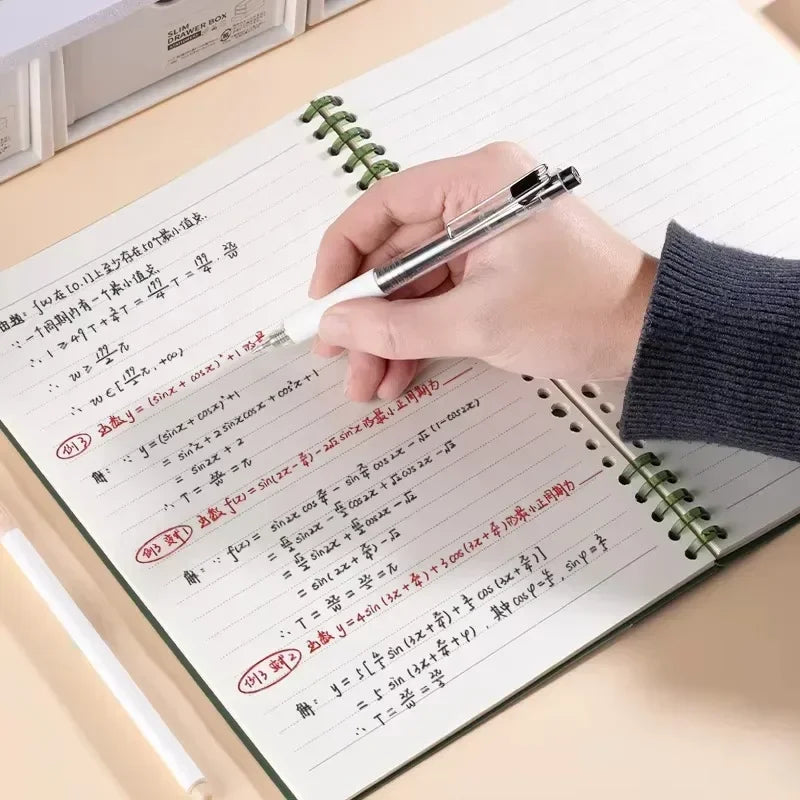 SLIM
DRAWER BOX
由题: f(x)在[0,1]上至少存在50个最小值点.
∵ 一个周期内有一个最小值点
∴ 1 ≥ 49T + 3/4 T = 199/4 T = 199/4 · 2π/w
∴ w ≥ 199/2 π
∴ w∈[199/2 π, +∞)
例3 函数 y = (sinx + cosx)²+1 的最
解: ∵ y = (sinx + cosx)²+1
= sin²x + 2 sinxcosx + cos²x + 1
= sin2x + 2
∴ T = 2π/w = π
例3 变1 函数 f(x) = sin(2x - π/4) - 2√2 sin²x 的最小正周期为
解: ∵ f(x) = sin2x cos π/4 - sin π/4 cos2x - √2 (1-cos2x)
= √2/2 sin2x - √2/2 cos2x + √2 cos2x - √2
= √2/2 sin2x + √2/2 cos2x - √2
= sin(2x + π/4) - √2
∴ T = 2π/w = 2π/2 = π
例3 变2 函数 y = 4 sin(3x + π/4) + 3 cos(3x + π/4) 的最小正周期为
解: y = 5[4/5 sin(3x + π/4) + 3/5 cos(3x + π/4)]
= 5 sin(3x + π/4 + φ), 其中 cosφ = 4/5, sinφ = 3/5
∴ T = 2π/w = 2π/3